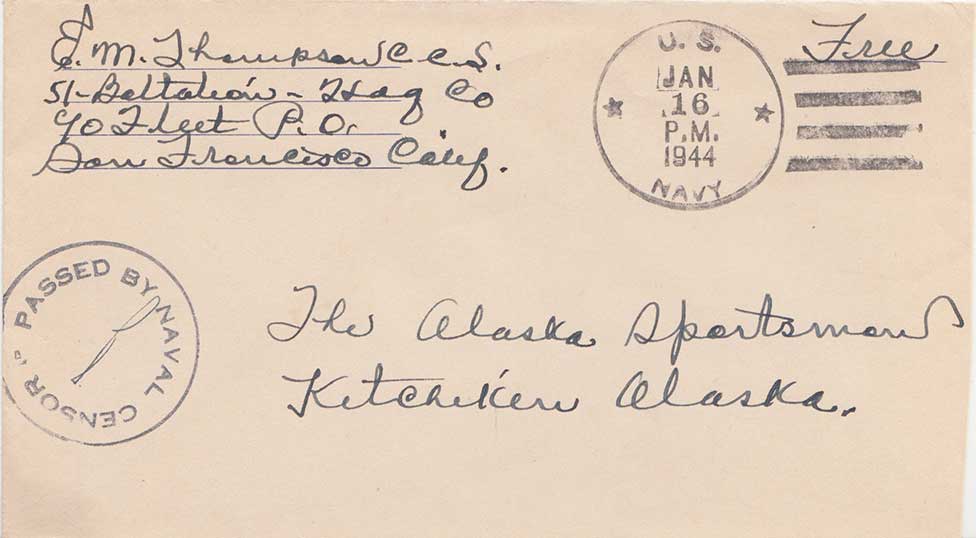 E. M. Thompson C.C.S.
51-Battalion - Hdq Co
c/o Fleet P.O.
San Francisco Calif.
U. S.
JAN
16
P.M.
1944
NAVY
Free
PASSED BY NAVAL CENSOR
The Alaska Sportsman
Ketchiken Alaska.